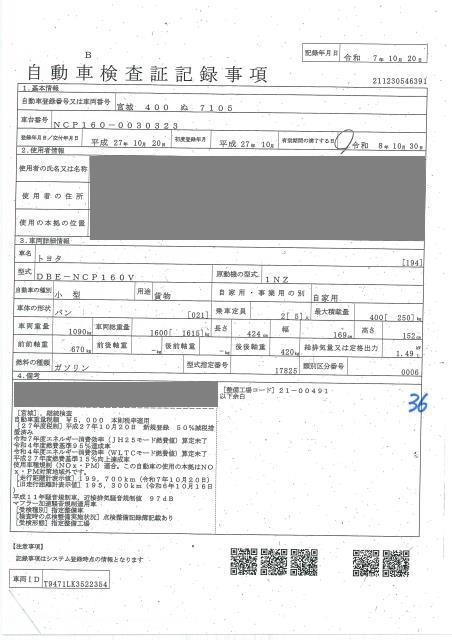 B
記録年月日 令和 7年 10月 20日
自動車検査証記録事項
211230546391
1.基本情報
自動車登録番号又は車両番号 宮城 400 ぬ 7105
車台番号 NCP160-0030323
登録年月日/交付年月日 平成 27年 10月 20日 初度登録年月 平成 27年 10月 有効期間の満了する日 令和 8年 10月 30日
2.使用者情報
使用者の氏名又は名称
使用者の住所
使用の本拠の位置
3.車両詳細情報
車名 トヨタ [194]
型式 DBE-NCP160V 原動機の型式 1NZ
自動車の種別 小型 用途 貨物 自家用・事業用の別 自家用
車体の形状 バン [021] 乗車定員 2[ 5]人 最大積載量 400[ 250]kg
車両重量 1090kg 車両総重量 1600[ 1615]kg 長さ 424cm 幅 169cm 高さ 152cm
前前軸重 670kg 前後軸重 -kg 後前軸重 -kg 後後軸重 420kg 総排気量又は定格出力 1.49L
燃料の種類 ガソリン 型式指定番号 17825 類別区分番号 0006
4.備考
[整備工場コード]21-00491
以下余白
36
[宮城],継続検査
自動車重量税額 ¥5,000 本則税率適用
[27年度税制]平成27年10月20日 新規登録 50%減税措
置済み
令和7年度エネルギー消費効率(JH25モード燃費値)算定未了
令和4年度燃費基準95%達成車
令和4年度エネルギー消費効率(WLTCモード燃費値)算定未了
平成27年度燃費基準15%向上達成車
使用車種規制(NOx・PM)適合。この自動車の使用の本拠はNO
x・PM対策地域外です。
[走行距離計表示値]199,700km(令和7年10月20日)
[旧走行距離計表示値]195,300km(令和6年10月16日
)
平成11年騒音規制車、近接排気騒音規制値 97dB
マフラー加速騒音規制適用車
[受検種別]指定整備車
[検査時の点検整備実施状況]点検整備記録簿記載あり
[受検形態]指定整備工場
【注意事項】
記録事項はシステム登録時点の情報となります
車両ID T9471LK3522354